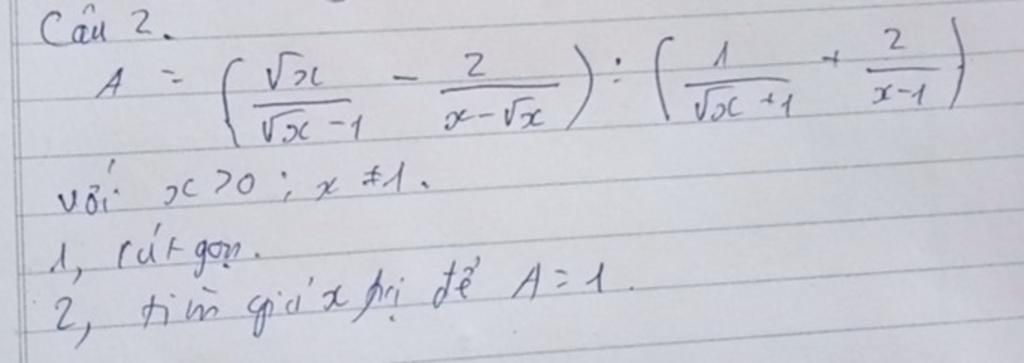 Câu 2.
A = (√x/(√x - 1) - 2/(x - √x)) : (1/(√x + 1) + 2/(x - 1))
với x > 0 ; x ≠ 1.
1, rút gọn.
2, tìm giá x trị để A = 1.